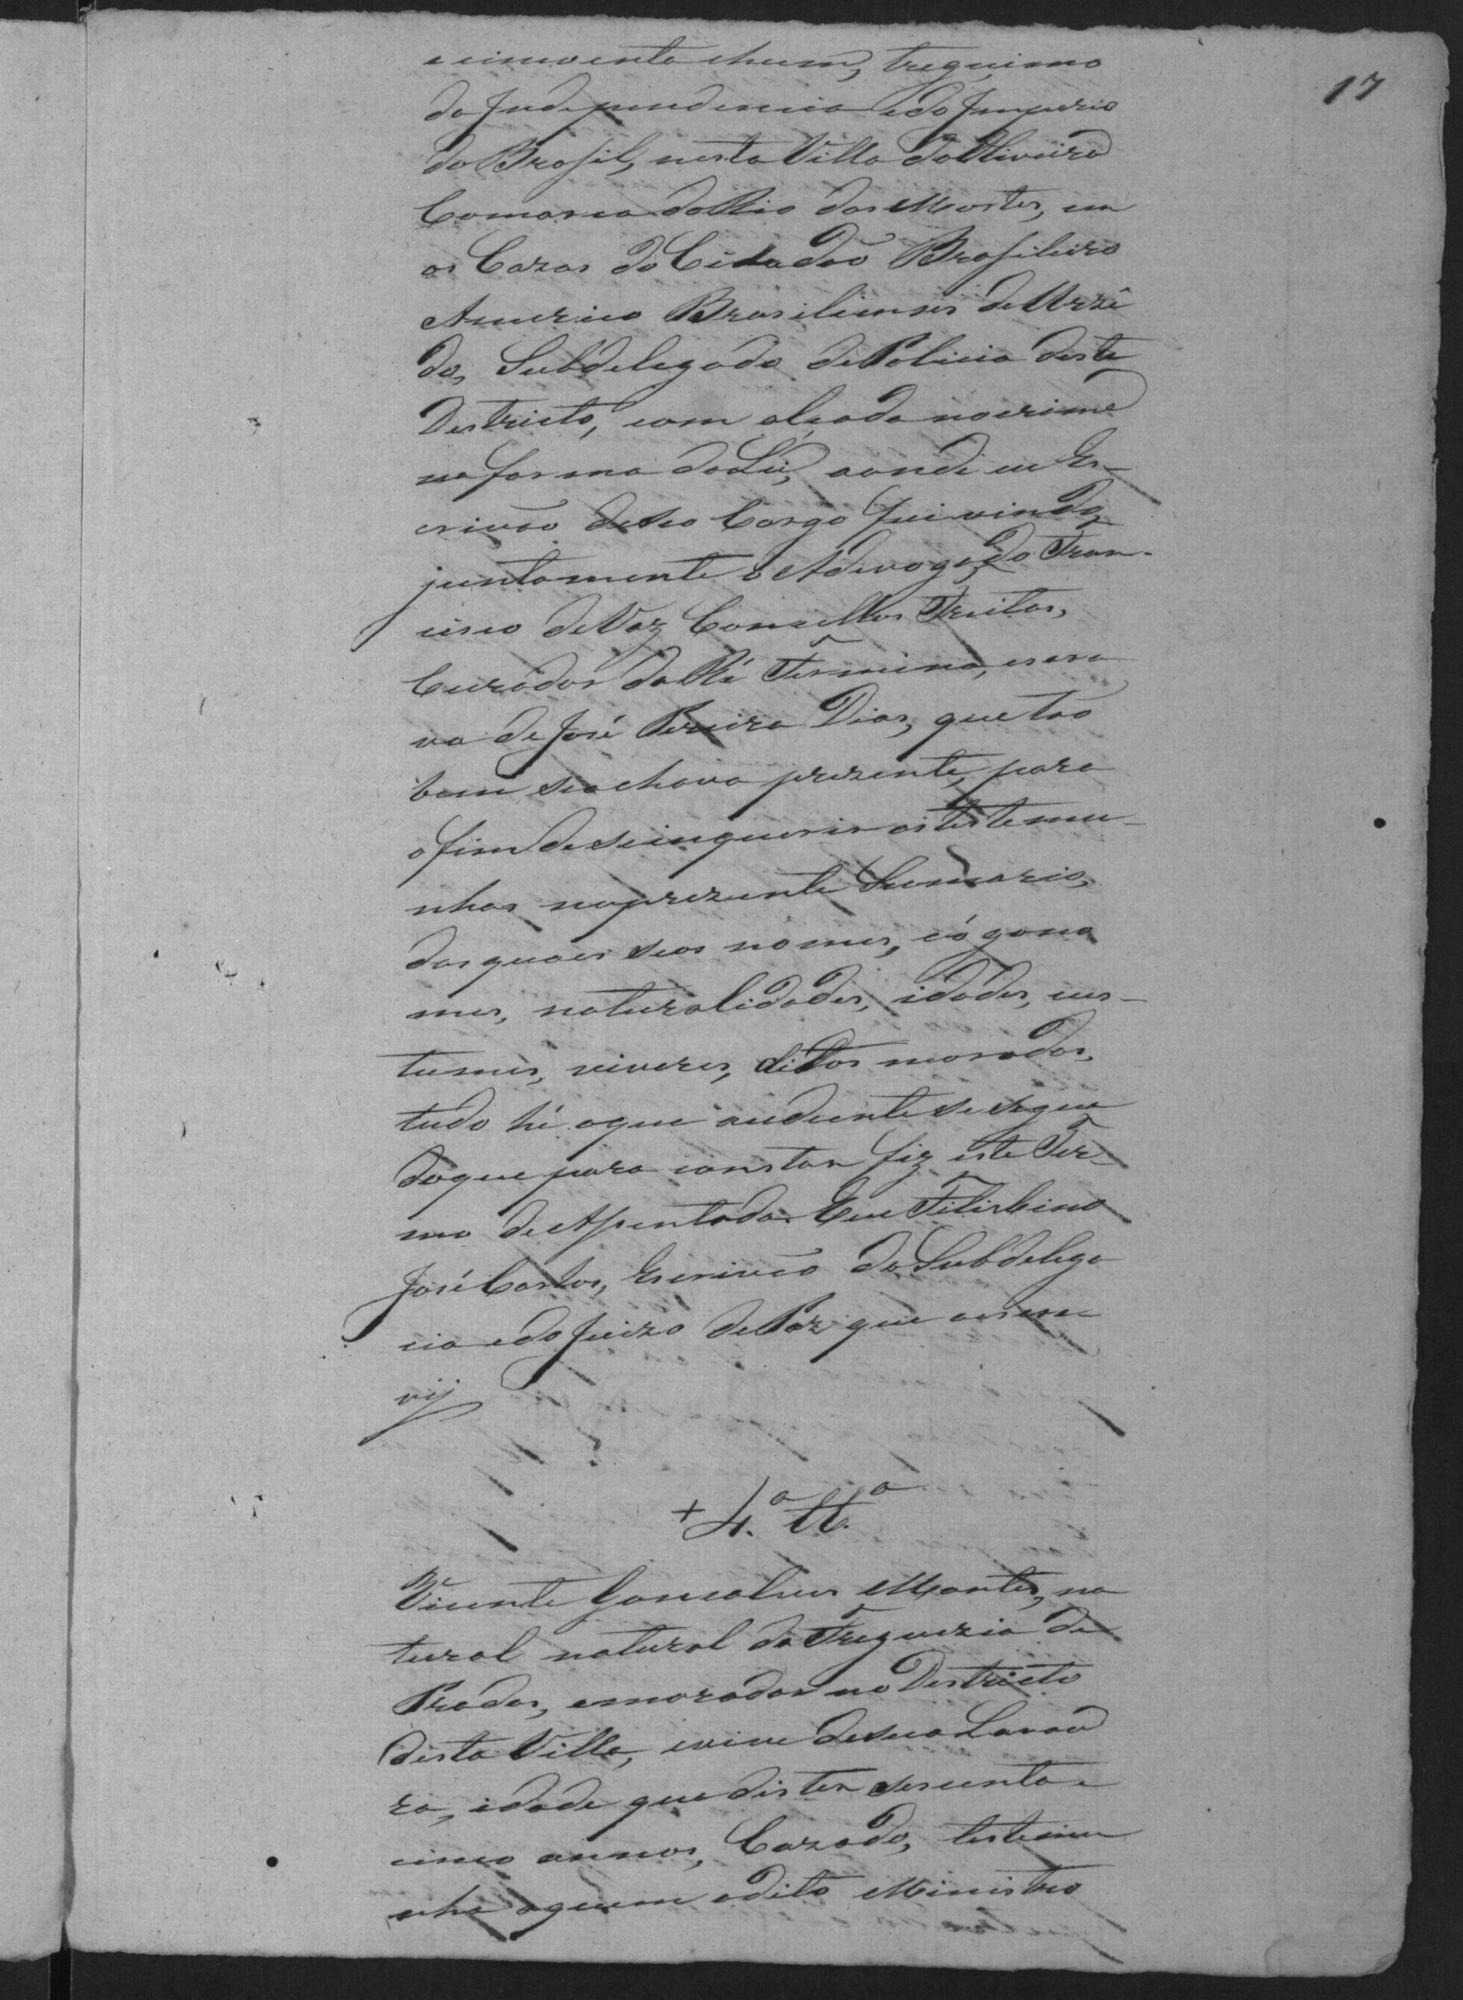 17
e cincoenta ehum, tregecimo
da Independencia edo Imperio
do Brasil, nesta Villa da Oliveira
Comarca do Rio das Mortes, em
as Cazas do Cidadão Brasileiro
Americo Brasiliense de Urzê
da, Subdelegado de Policia deste
Destricto, com alçada nocrime
na forma da Lei, aonde eu Es-
crivão deseo Cargo fui vindo,
juntamente o Advogado Fran-
cisco de Vaz Consellos Freitas,
Curador da Ré Fermina, escra
va de José Pereira Dias, que tão
bem seachava prezente, para
ofim de seinquerir as testemu-
nhas noprezente Sumario,
dasquaes seos nomes, cógono
mes, naturalidades, idades, cus-
tumes, viveres, dittos morados,
tudo hé oque audiente sesegue
doque para constar fiz este Ter-
mo de Assentada. Eu Felisbino
José Carlos, Escrivão da Subdelega
cia edo Juizo de Paz que oescre
vij
+ 4.ª tt.ª
Vicente Gonsalves Montes, na
tural natural da Freguezia de
Prados, emorador no Destricto
desta Villa, evive desua Lavou
ra, idade que dis ter sesenta e
cinco annos, Cazado, testemu
nha aquem odito Ministro